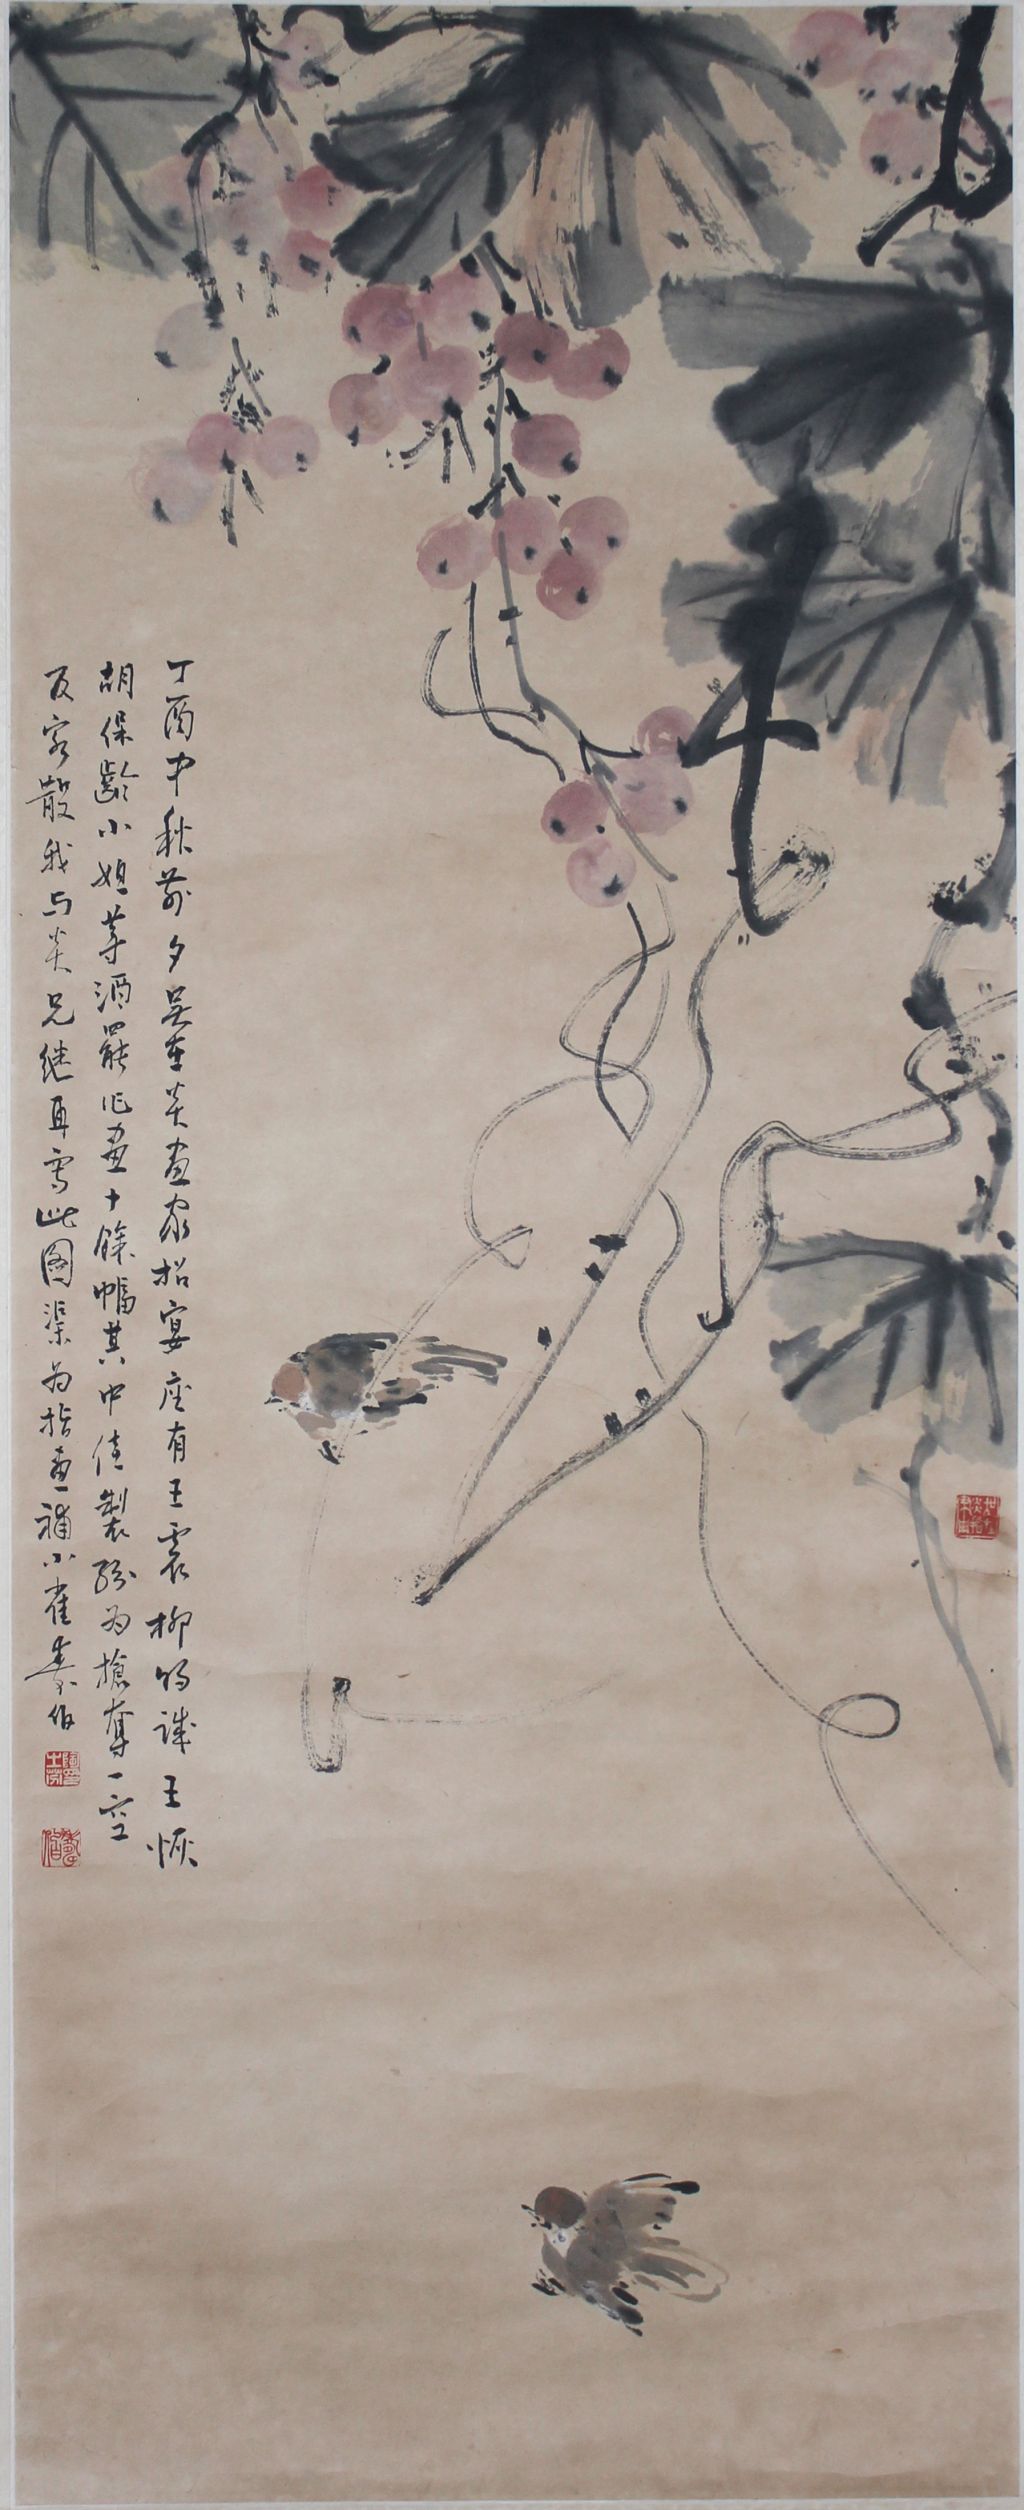 丁酉中秋前夕吴在炎画家招宴座有王震柳鸣诚王恢
胡保龄小姐等酒罢作画十余幅其中佳製纷为抢夺一空
及客散我与炎兄继再写此图渠为指画补小雀寿伯